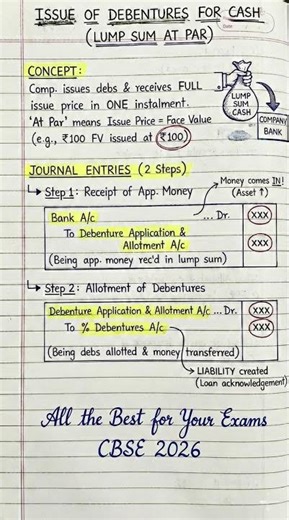 ISSUE OF DEBENTURES FOR CASH
(LUMP SUM AT PAR)
CONCEPT:
Comp. issues debs & receives FULL
issue price in ONE instalment.
'At Par' means Issue Price = Face Value
(e.g., ₹100 FV issued at ₹100)
LUMP
SUM
CASH
COMPANY
BANK
JOURNAL ENTRIES (2 Steps)
Money comes IN!
(Asset ↑)
↳ Step 1: Receipt of App. Money
Bank A/c ... Dr. XXX
To Debenture Application &
Allotment A/c XXX
(Being app. money rec'd in lump sum)
↳ Step 2: Allotment of Debentures
Debenture Application & Allotment A/c ... Dr. XXX
To % Debentures A/c XXX
(Being debs allotted & money transferred)
LIABILITY created
(Loan acknowledgement)
All the Best for Your Exams
CBSE 2026